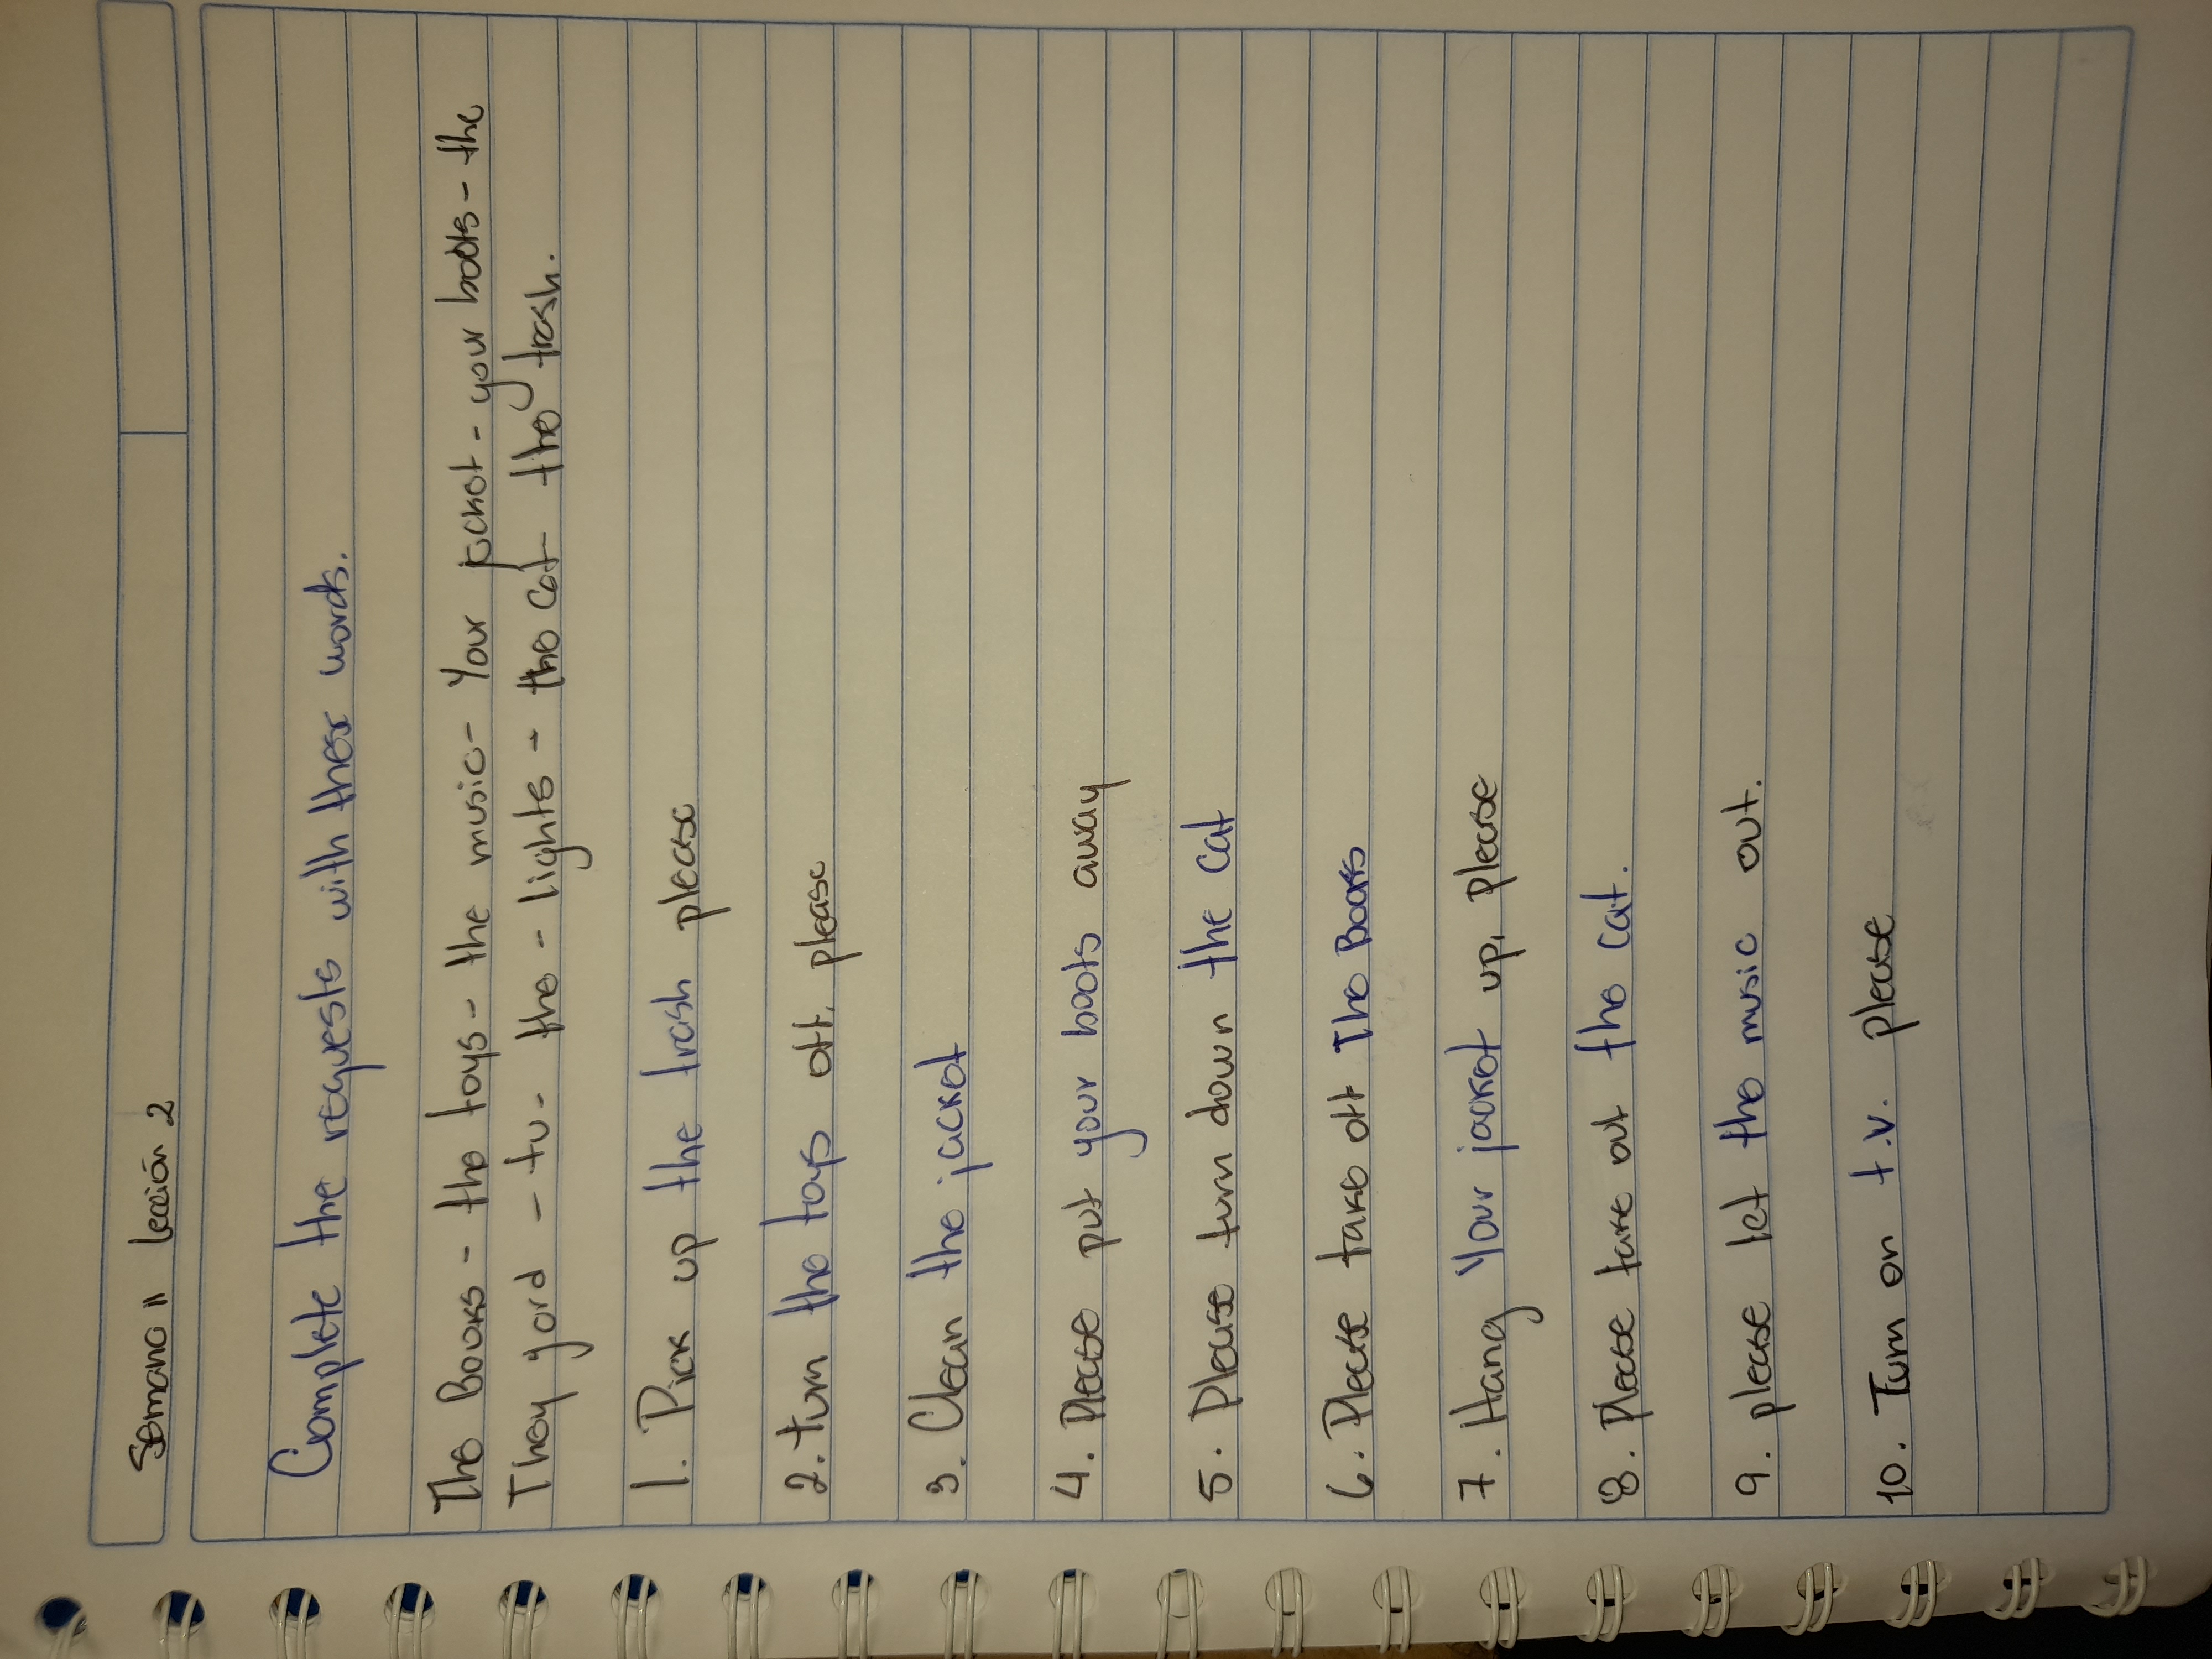 Semana 11 lección 2
Complete the requests with these words.
The Books - the toys - the music - Your jacket - your boots - the
They yard - tv - the - lights - the cat the trash.
1. Pick up the trash please
2. turn the toys off, please
3. Clean the jacket
4. Please put your boots away
5. Please turn down the cat
6. Please take off The Books
7. Hang Your jacket up, please
8. Please take out the cat.
9. please let the music out.
10. Turn on t.v. please